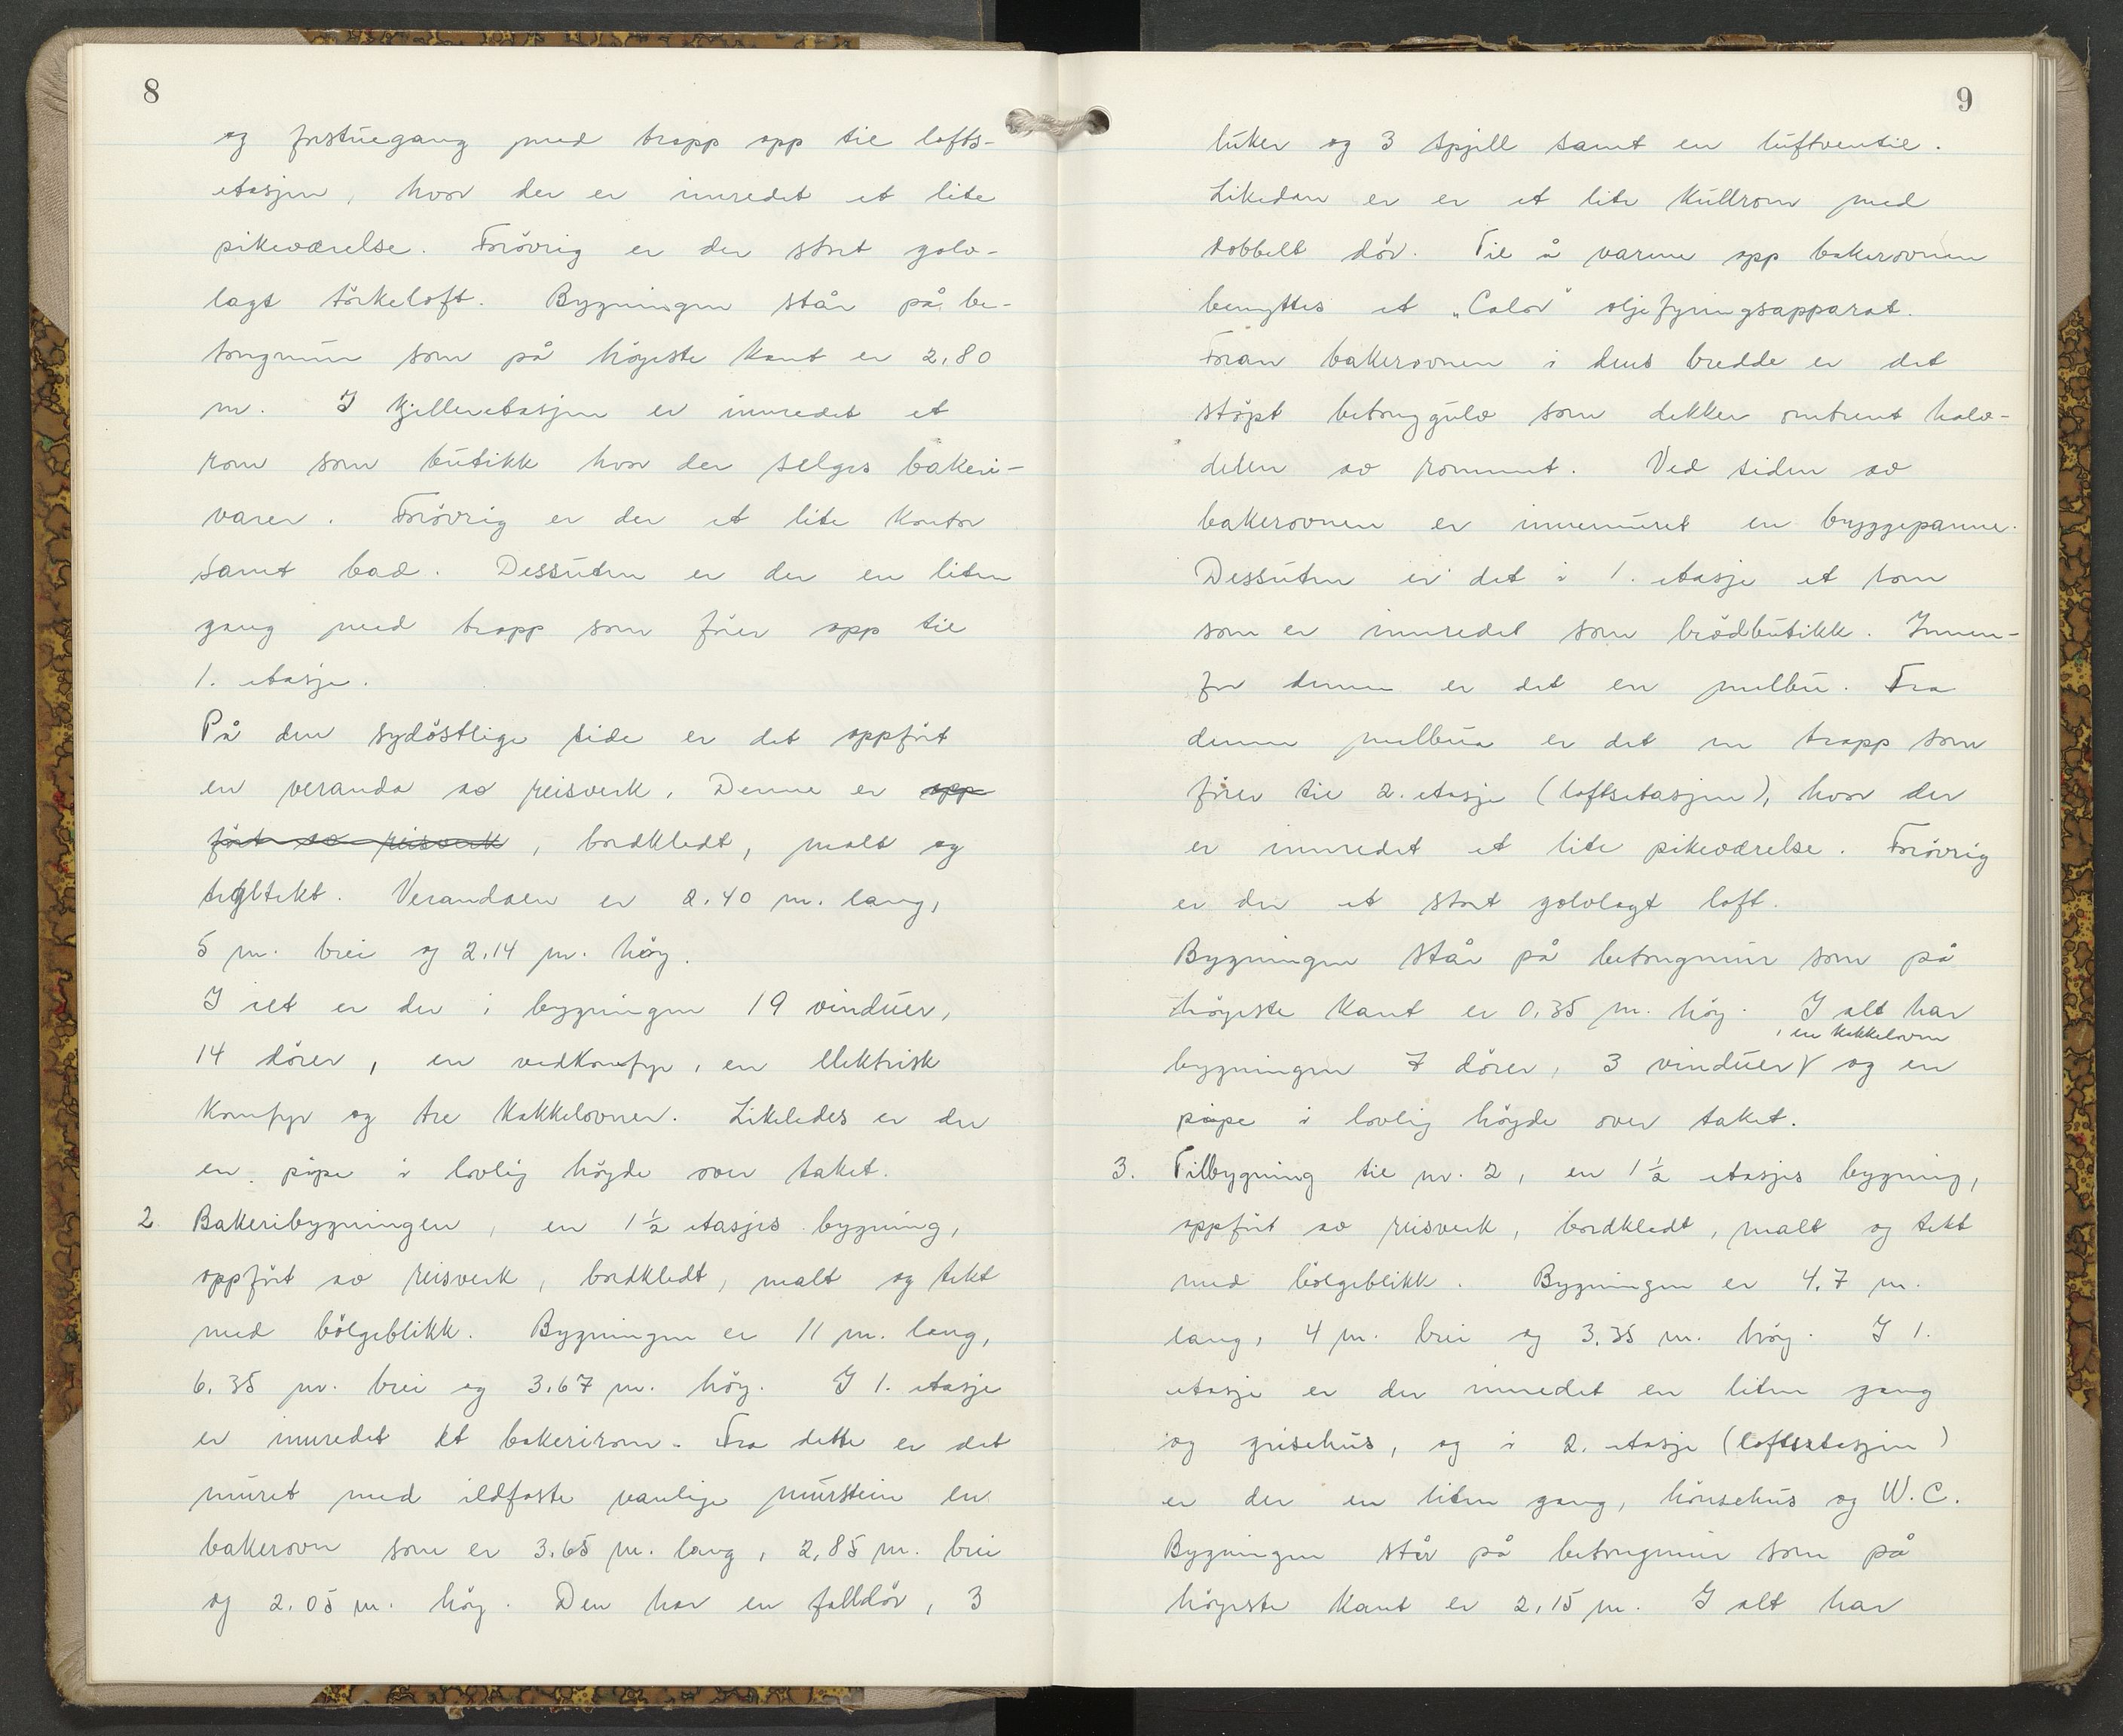 8
og forstuegang med trapp opp til lofts-
etasjen, hvor der er innredet et lite
pikeværelse. Forövrig er der stort golv-
lagt törkeloft. Bygningen står på be-
tongmur som på högeste kant er 2,80
m. I kjelleretasjen er innredet et
rom som butikk hvor der selges bakeri-
varer. Forövrig er der et lite kontor
samt bad. Dessuten er der en liten
gang med trapp som förer opp til
1. etasje.
På den sydöstlige side er det oppfört
en veranda av reisverk. Denne er opp
fört av reisverk, bordkledt, malt og
tegltekt. Verandaen er 2.40 m. lang,
5 m. brei og 2.14 m. höy.
I alt er der i bygningen 19 vinduer,
14 dörer, en vedkomfyr, en elektrisk
komfyr og tre kakkelovner. Likeledes er der
en pipe i lovlig höyde over taket.
2. Bakeribygningen, en 1½ etasjes bygning,
oppfört av reisverk, bordkledt, malt og tekt
med bölgeblikk. Bygningen er 11 m. lang,
6.35 m. brei og 3.67 m. höy. I 1. etasje
er innredet et bakerirom. Fra dette er det
muret med ildfaste vanlige murstein en
bakerovn som er 3.65 m. lang, 2,85 m. brei
og 2.05 m. höy. Den har en falldör, 3
9
luker og 3 spjell samt en luftventil.
Likedan er er et lite kullrom med
dobbelt dör. Til å varme opp bakerovnen
benyttes et „Calor" oljefyringsapparat.
Foran bakerovnen i dens bredde er det
stöpt betonggulv som dekker omtrent halv-
delen av rommet. Ved siden av
bakerovnen er innemuret en bryggepanne.
Dessuten er det i 1. etasje et rom
som er innredet som brödbutikk. Innen-
for denne er det en melbu. Fra
denne melbua er det en trapp som
förer til 2. etasje (loftsetasjen), hvor der
er innredet et lite pikeværelse. Forövrig
er der et stort golvlagt loft.
Bygningen står på betongmur som på
högeste kant er 0.35 m. höy. I alt har
, en kakkelovn
bygningen 7 dörer, 3 vinduer og en
pipe i lovlig höyde over taket.
3. Tilbygning til nr. 2, en 1½ etasjes bygning,
oppfört av reisverk, bordkledt, malt og tekt
med bölgeblikk. Bygningen er 4.7 m.
lang, 4 m. brei og 3.35 m. höy. I 1.
etasje er der innredet en liten gang
og grisehus, og i 2. etasje (loftsetasjen)
er der en liten gang, hönsehus og W.C.
Bygningen står på betongmur som på
högeste kant er 2,15 m. I alt har